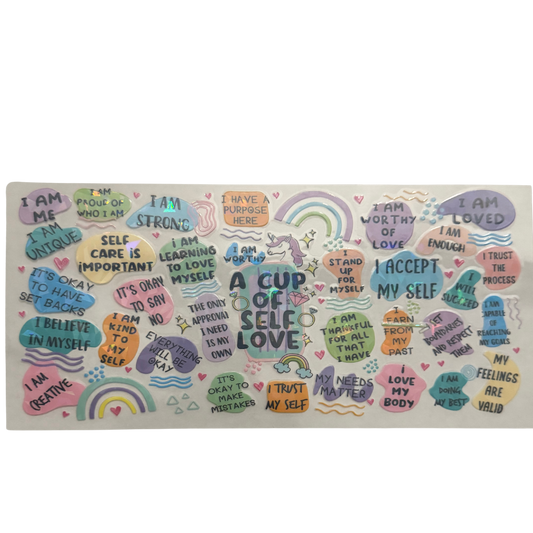 I AM
ME
I AM
PROUD OF
WHO I AM
I AM
STRONG
I HAVE A
PURPOSE
HERE
I AM
WORTHY
OF
LOVE
I AM
LOVED
I AM
UNIQUE
SELF
CARE IS
IMPORTANT
I AM
LEARNING
TO LOVE
MYSELF
I AM
WORTHY
I
STAND
UP FOR
MYSELF
I AM
ENOUGH
I TRUST
THE
PROCESS
I ACCEPT
MY SELF
I
WILL
SUCCEED
IT'S OKAY
TO HAVE
SET BACKS
IT'S OKAY
TO SAY
NO
A CUP
OF
SELF
LOVE
THE ONLY
APPROVAL
I NEED
IS MY
OWN
I AM
CAPABLE
OF
REACHING
MY GOALS
I BELIEVE
IN MYSELF
I AM
KIND
TO
MY
SELF
EVERYTHING
WILL BE
OKAY
I AM
THANKFUL
FOR ALL
THAT
I HAVE
I
LEARN
FROM
MY
PAST
I SET
BOUNDARIES
AND RESPECT
THEM
I AM
CREATIVE
IT'S
OKAY TO
MAKE
MISTAKES
I TRUST
MY SELF
MY NEEDS
MATTER
I
LOVE
MY
BODY
I AM
DOING
MY BEST
MY
FEELINGS
ARE
VALID